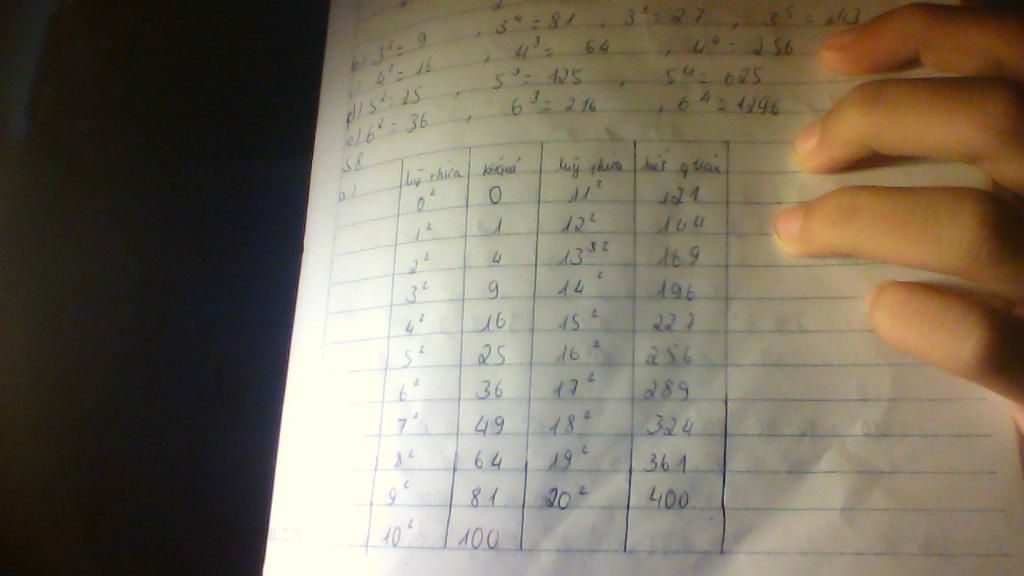 3⁴ = 81 , 3³ = 27 , 3⁵ = 243
b) 3² = 9
4² = 16 , 4³ = 64 , 4⁴ = 256
d) 5² = 25 , 5³ = 125 ; 5⁴ = 625
e) 6² = 36 ; 6³ = 216 , 6⁴ = 1296
58
a) luỹ thừa luỹ thừa kết quả
0² 0 11² 121
1² 1 12² 144
2² 4 13² 169
3² 9 14² 196
4² 16 15²
5² 25 16² 256
6² 36 17² 289
7² 49 18² 324
8² 64 19² 361
9² 81 20² 400
10² 100